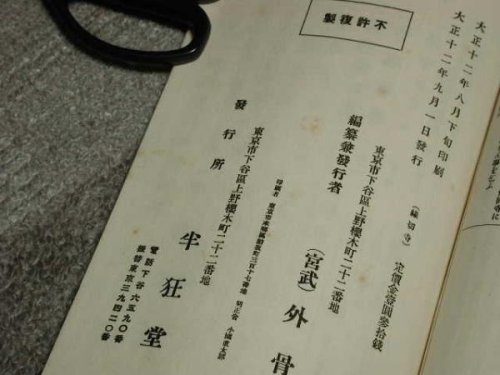 大正十二年八月下旬印刷
大正十二年九月一日發行
(緣切寺) 定價金壹圓參拾錢
東京市下谷區上野櫻木町二十二番地
編纂兼發行者 (宮武)外骨
印刷者
東京市下谷區上野櫻木町二十二番地
發行所 半狂堂
電話下谷六五九〇番
振替東京三九四二〇番
不許複製